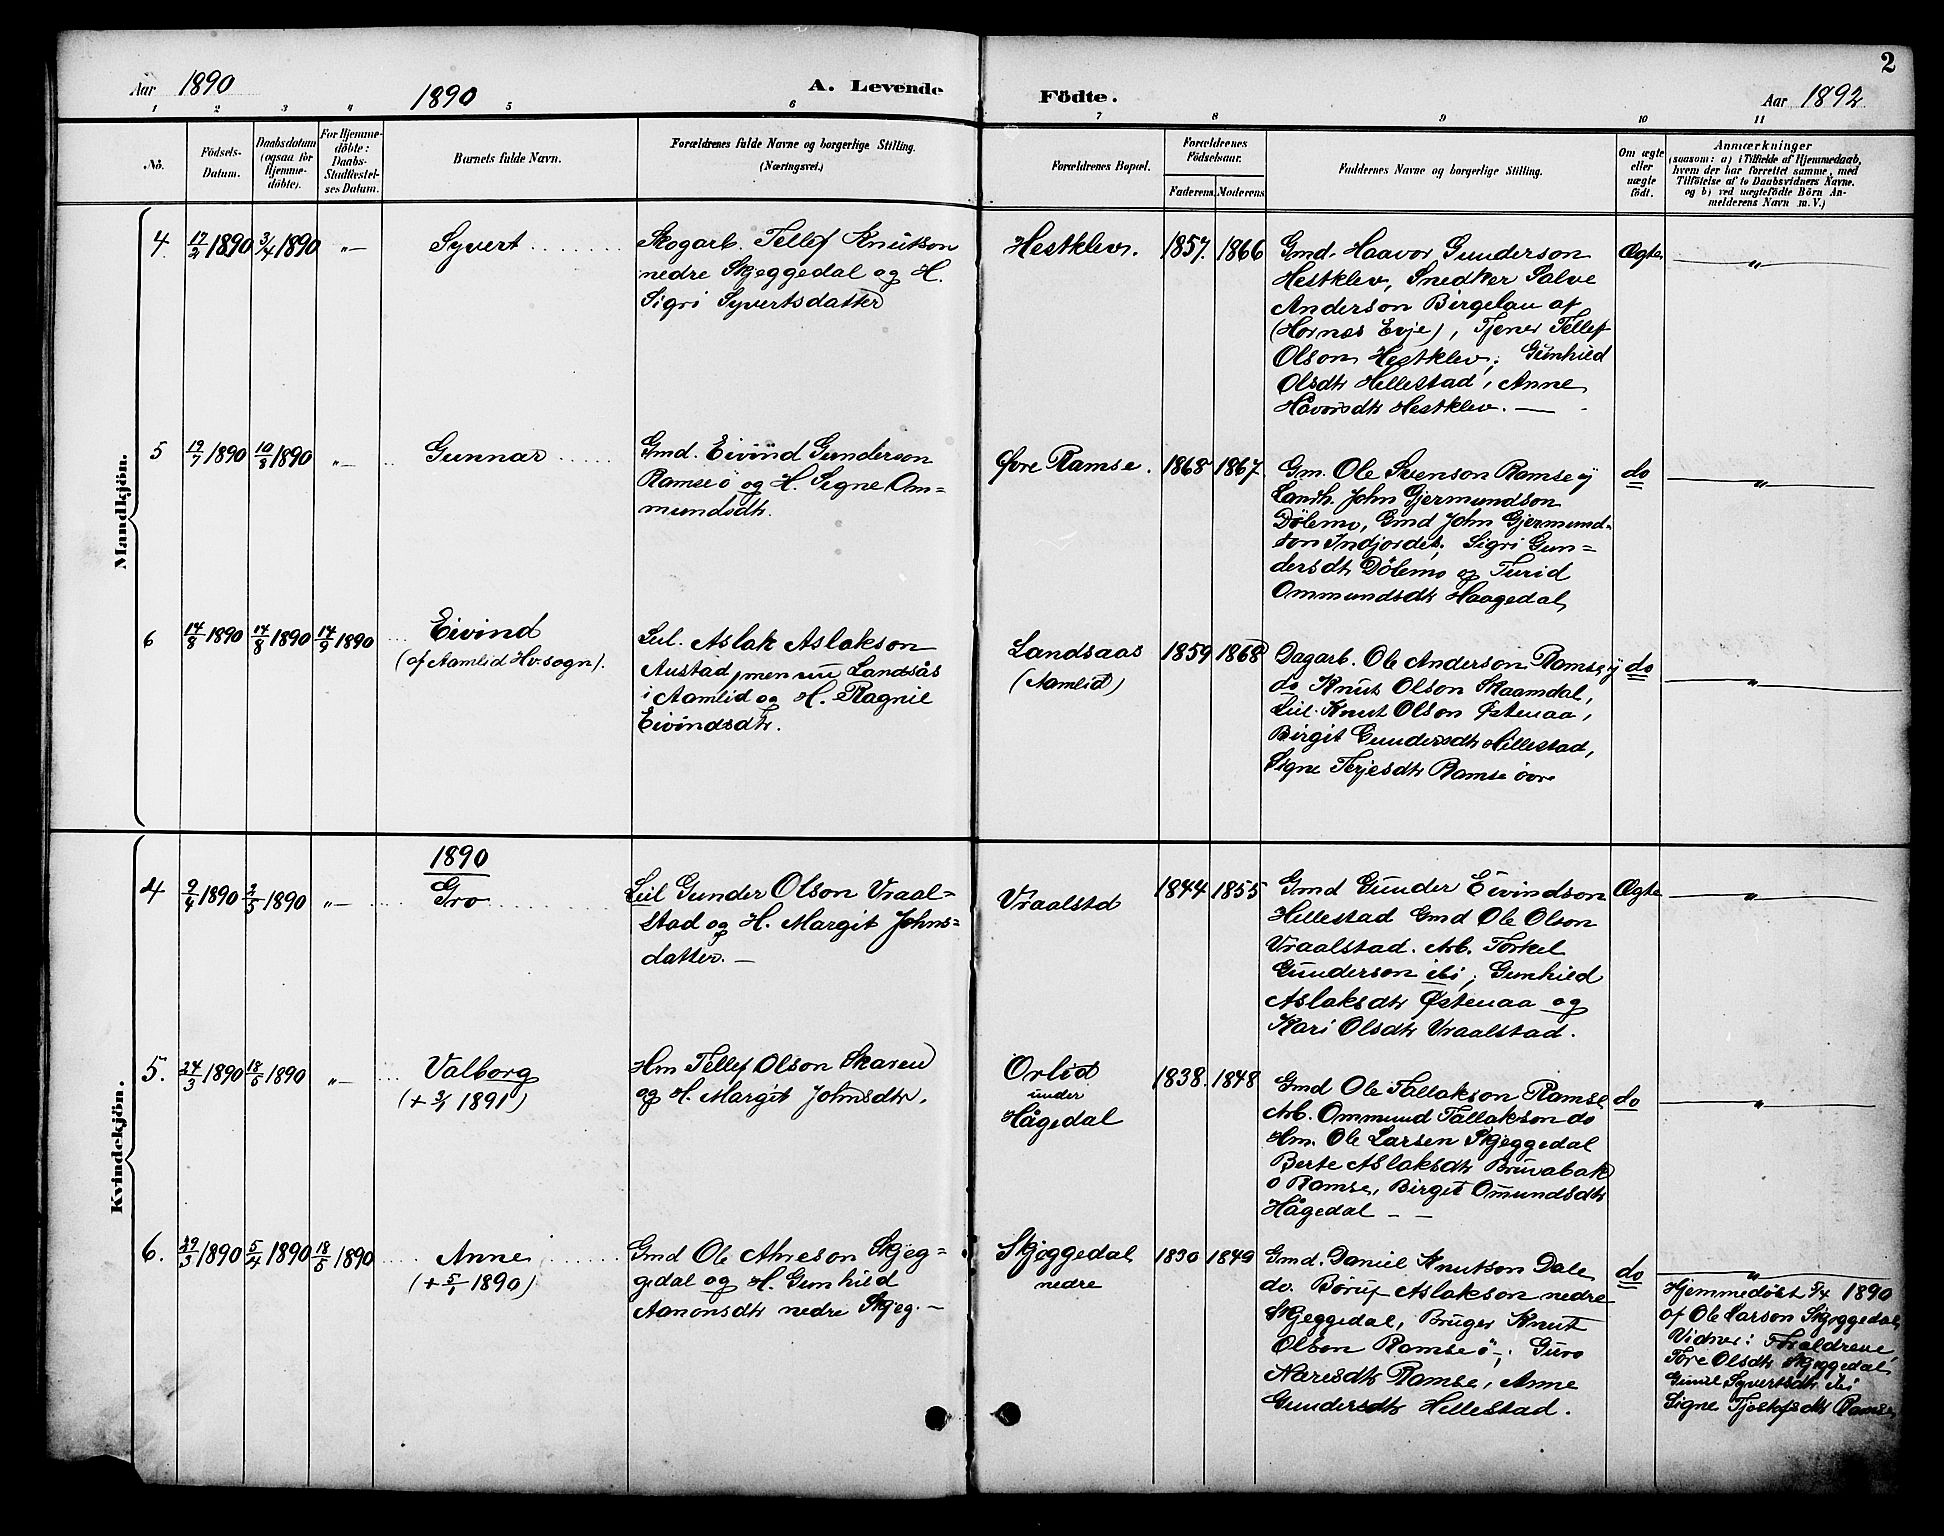 2
Aar 1890
1890
A. Levende
Födte.
Aar 1892
1 2 3 4 5 6 7 8 9 10 11
No.
Födsels-
Datum.
Daabsdatum
(ogsaa for
Hjemme-
döbte).
For Hjemme-
döbte:
Daabs-
Stadfæstel-
ses Datum.
Barnets fulde Navn.
Forældrenes fulde Navne og borgerlige Stilling.
(Næringsvei.)
Forældrenes Bopæl.
Forældrenes
Födselsaar.
Faderens. Moderens.
Faddernes Navne og borgerlige Stilling.
Om ægte
eller
uægte
födt.
Anmærkninger
(saasom: a) i Tilfælde af Hjemmedaab,
hvem der har forrettet samme, med
Tilföielse af to Daabsvidners Navne.
og b) ved uægtefödte Börn An-
melderens Navn m. V.)
Mandkjön.
4 17/2 1890 3/4 1890 "— Syvert
Skogarb. Tellef Knutson
nedre Skjeggedal og H.
Sigri Syvertsdatter
Hestklev. 1857. 1866
Gmd. Haavor Gunderson
Hestklev, Snedker Salve
Anderson Birgelau af
(Hornæs Evje), Tjener Tellef
Olson Hestklev; Gunhild
Olsdtr Hillestad, Anne
Håvorsdtr Hestklev. —
Ægte —"—
5 19/7 1890 10/8 1890 "— Gunnar
Gmd. Eivind Gunderson
Ramse ö og H. Signe Om=
mundsdtr.
Øvre Ramse. 1868 1867.
Gm. Ole Svenson Ramse y
Landh. John Gjermundson
Dölemo, Gmd John Gjermund-
son Indjordet. Sigri Gun=
dersdtr Dölemo og Turid
Ommundsdtr Haagedal
do —"—
6 14/8 1890 14/8 1890 14/9 1890 Eivind
(af Aamlid Hv.sogn).
Leil. Aslak Aslakson
Austad, men nu Landsås
i Aamlid og H. Ragnil
Eivindsdtr.
Landsaas
(Aamlid)
1859 1868
Dagarb. Ole Anderson Ramse y
do Knut Olson Skaamdal,
Leil. Knut Olson Østenaa,
Birgit Gundersdtr Hillestad,
Signe Terjesdtr Ramse övre
do —"—
Kvindekjön.
1890
4 9/4 1890 2/5 1890 "— Gro
Leil Gunder Olson Vraal=
stad og H. Margit Johns=
datter. —
Vraalstd 1844 1855
Gmd Gunder Eivindson
Hillestad Gmd Ole Olson
Vraalstad. Arb. Torkel
Gunderson ibi; Gunhild
Aslaksdtr Østenaa og
Kari Olsdtr Vraalstad.
Ægte —"—
5. 24/3 1890 18/5 1890 "— Valborg
(+ 3/1 1891)
Hm Tellef Olson Skaren
og H. Margit Johnsdtr.
Orlid
under
Hågedal
1838. 1848
Gmd Ole Tallakson Ramse
Arb. Ommund Tallakson do
Hm. Ole Larsen Skjeggedal
Berte Aslaksdtr Bruvabak
o Ramse, Birgit Omundsdtr
Hågedal — —
do —"—
6. 29/3 1890 5/4 1890 18/5 1890 Anne
(+ 5/1 1890)
Gmd Ole Ahreson Skjeg=
gedal og H. Gunhild
Aanonsdtr nedre Skjeg. —
Skjeggedal
nedre
1830 1849
Gmd. Daniel Knutson Dale
do. Böruf Aslakson nedre
Skjeggedal, Bruger Knut
Olson Ramse ö —; Guro
Næresdtr Ramse, Anne
Gundersdtr Hillestad.
do —"—
Hjemmedöbt 5/4 1890
af Ole Larson Skjeggedal
Vidner: Forældrene
Tore Olsdtr Skjeggedal
Gunil Syvertsdtr ibi
Signe Tjostofsdtr Ramse